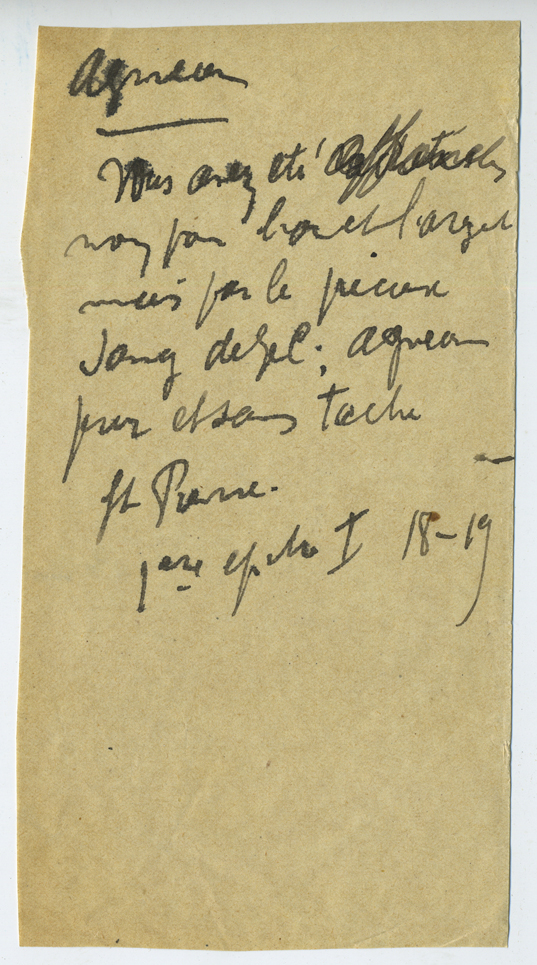 Agneau
Vous avez été
non par l'or et l'argent
mais par le précieux
Sang de J.C., agneau
pur et sans tache
St Pierre.
1ère epitre I 18-19